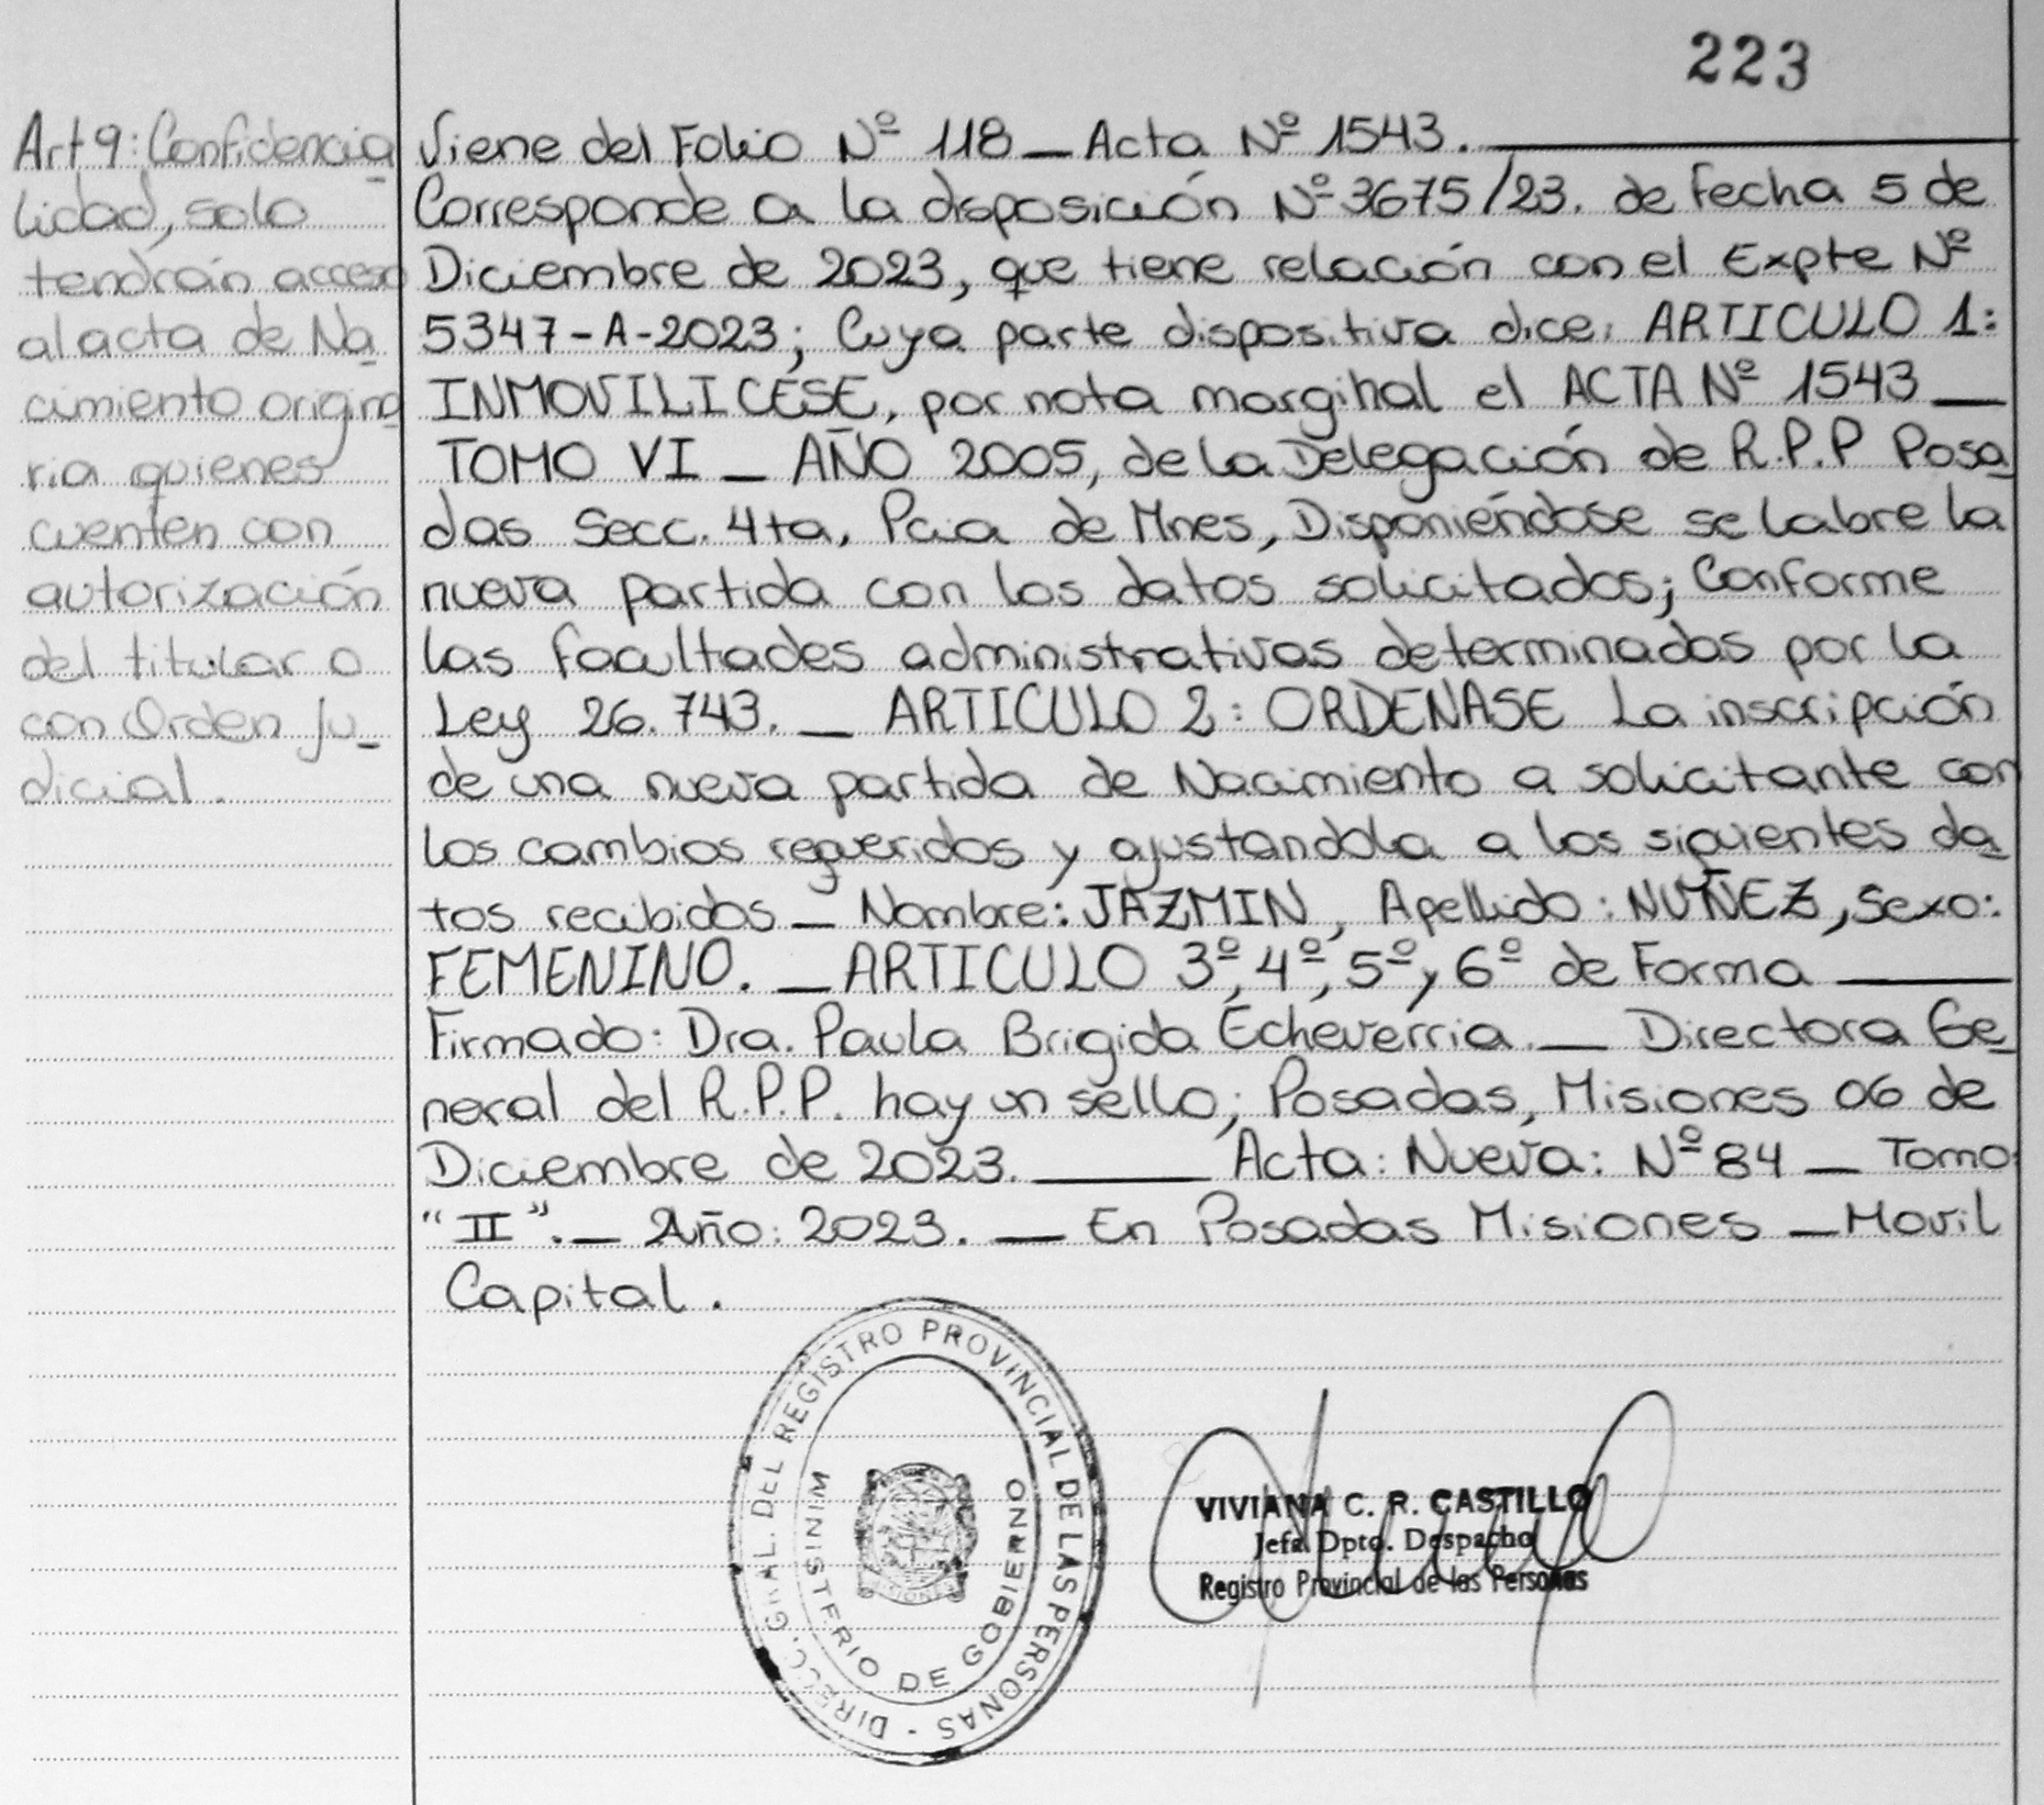 223
Art 9: Confidencia
lidad, solo
tendrán acceso
al acta de Na
cimiento origina
ria quienes
cuenten con
autorización
del titular o
con Orden Ju_
dicial.
Viene del Folio Nº 118 _ Acta Nº 1543.
Corresponde a la disposición Nº 3675/23. de Fecha 5 de
Diciembre de 2023, que tiene relación con el Expte Nº
5347-A-2023; Cuya parte dispositiva dice: ARTICULO 1:
INMOVILICESE, por nota marginal el ACTA Nº 1543 _
TOMO VI _ AÑO 2005, de la Delegación de R.P.P Posa
das Secc. 4ta, Pcia de Mnes, Disponiéndose se labre la
nueva partida con los datos solicitados; Conforme
las facultades administrativas determinadas por la
Ley 26.743. _ ARTICULO 2: ORDENASE La inscripción
de una nueva partida de Nacimiento a solicitante con
los cambios requeridos y ajustandola a los siguientes da
tos recibidos _ Nombre: JAZMIN, Apellido: NUÑEZ, Sexo:
FEMENINO. _ ARTICULO 3º, 4º, 5º, y 6º de Forma
Firmado: Dra. Paula Brigida Echeverria. _ Directora Ge_
neral del R.P.P. hay un sello; Posadas, Misiones 06 de
Diciembre de 2023. _ Acta: Nueva: Nº 84 _ Tomo:
"II". _ Año: 2023. _ En Posadas Misiones _ Movil
Capital.
DIRECC. GRAL. DEL REGISTRO PROVINCIAL DE LAS PERSONAS -
MINISTERIO DE GOBIERNO
VIVIANA C. R. CASTILLO
Jefa Dpto. Despacho
Registro Provincial de las Personas